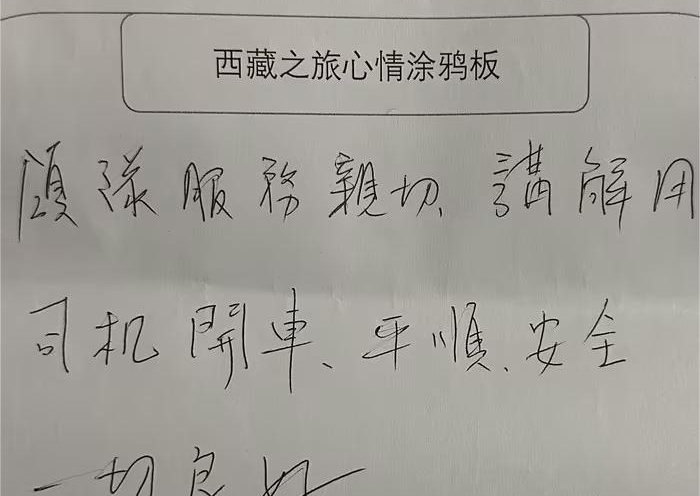 西藏之旅心情涂鸦板
領隊服務親切、講解用
司机開車、平順、安全
一切良好